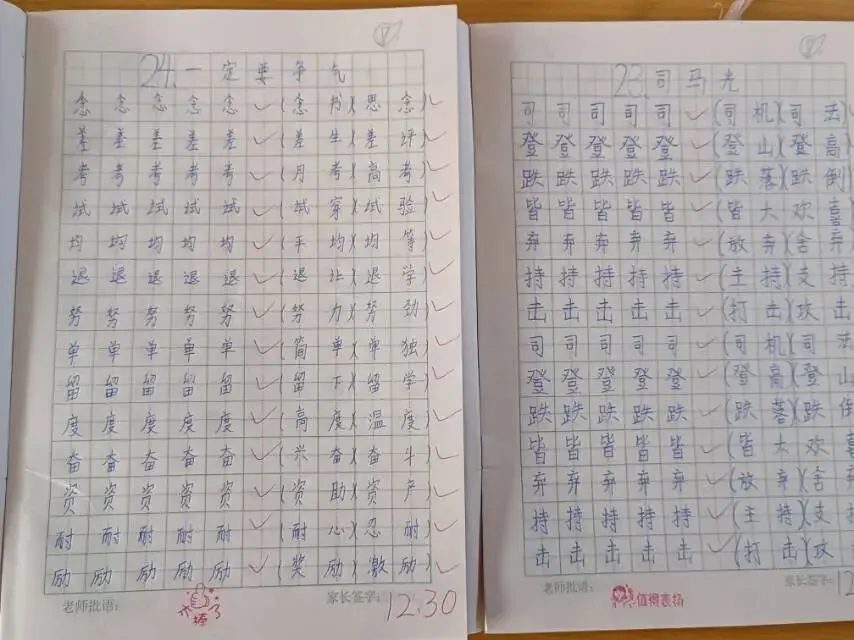 24.一定要争气
念念念念念(念书)(思念)
差差差差差(差生)(差评)
考考考考考(月考)(高考)
试试试试试(试穿)(试验)
均均均均均(平均)(均等)
退退退退退(退让)(退学)
努努努努努(努力)(努劲)
单单单单单(简单)(单独)
留留留留留(留下)(留学)
度度度度度(高度)(温度)
奋奋奋奋奋(兴奋)(奋斗)
资资资资资(资助)(资产)
耐耐耐耐耐(耐心)(忍耐)
励励励励励(奖励)(激励)
老师批语:
家长签字:
12.30
23.司马光
司司司司司(司机)(司法
登登登登登(登山)(登高
跌跌跌跌跌(跌落)(跌倒
皆皆皆皆皆(皆大欢喜
弃弃弃弃弃(放弃)(舍弃
持持持持持(主持)(支持
击击击击击(打击)(攻击
司司司司司(司机)(司法
登登登登登(登高)(登山
跌跌跌跌跌(跌落)(跌倒
皆皆皆皆皆(皆大欢喜
弃弃弃弃弃(放弃)(舍弃
持持持持持(主持)(支持
击击击击击(打击)(攻击
老师批语:
值得表扬
家长签字:
12